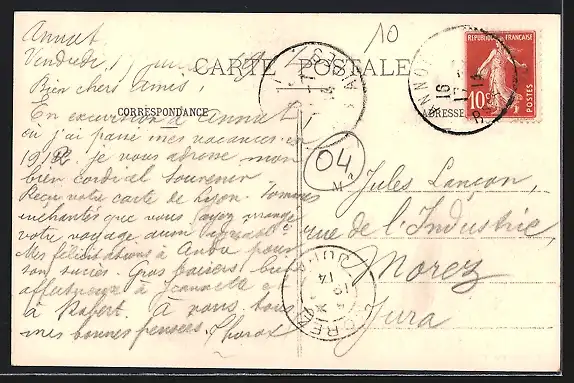 Annot
Vendredi
Bien chers amis,
En excursion à Annot,
où j'ai passé mes vacances en
1912, je vous adresse mon
bien cordial souvenir.
Reçu votre carte de Lyon. Sommes
enchantés que vous ayez
votre voyage aussi agréable
Mes félicitations à pour
son succès. Gros baisers, bien
affectueux à Jeannette et
à Robert. À vous tous
mes bonnes pensées.
CARTE POSTALE
CORRESPONDANCE
ADRESSE
10
04
REPUBLIQUE FRANÇAISE
10c
POSTES
ANNOT
16
14
MOREZ
JURA
14
Mr
Jules Lançon,
rue de l'Industrie,
Morez
Jura